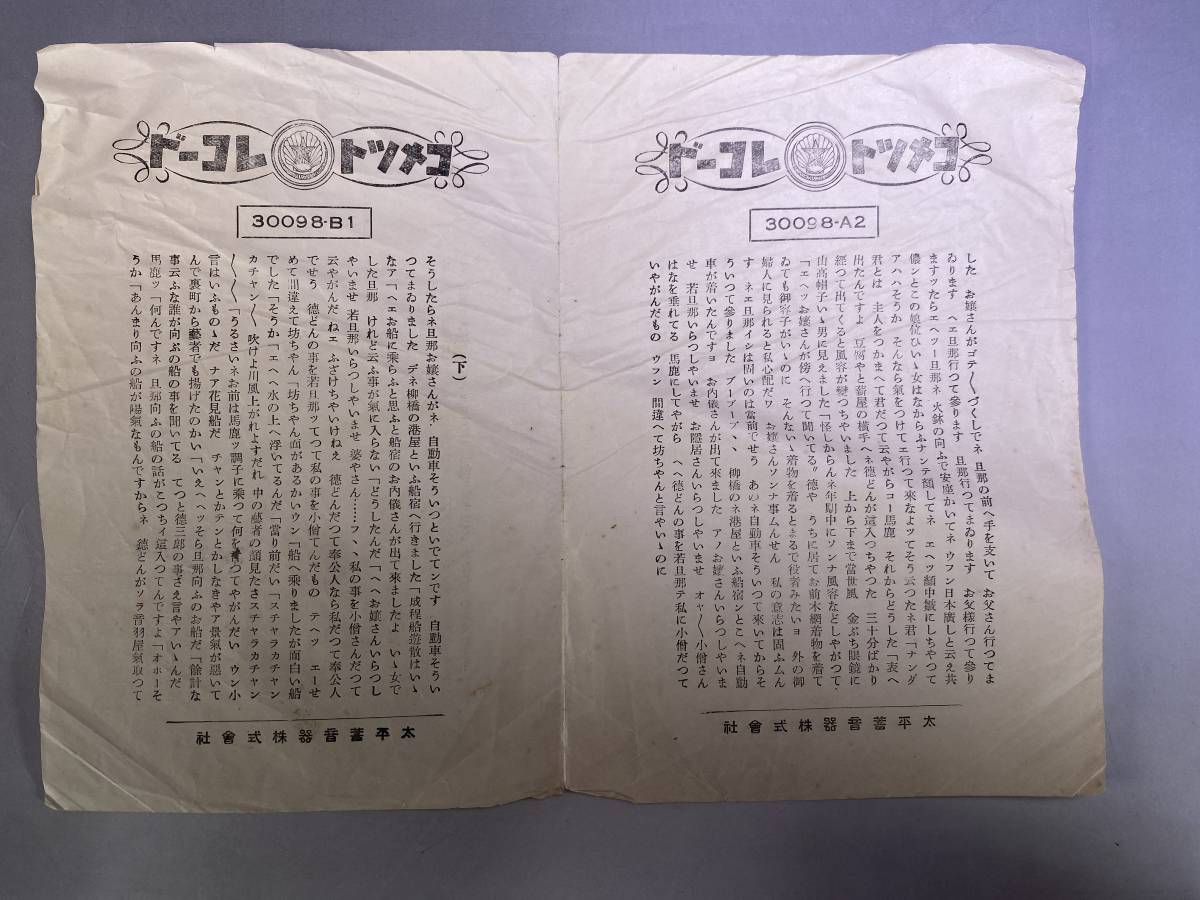 コメツト レコード
30098-A2
した お孃さんがゴテ〱づくしでネ 旦那の前へ手を支いて お父さん行つてま
ゐります ヘエ旦那行つて參ります 旦那行つてまゐります お父樣行つて參り
ますツたらエヘツー旦那ネ 火鉢の向ふで安座かいてネ ウフン日本廣しと云え共
儂ンとこの娘位ひいゝ女はなからふナンテ顏してネ エヘツ顏中皺にしちやつて
アハハそうか そんなら氣をつけてエ行つて來なよツてそう云つたネ君「ナンダ
君とは 主人をつかまへて君だつて云やがらコー馬鹿 それからどうした「表へ
出たんですよ 豆腐やと酒屋の橫手へネ德どんが這入つちやつた 三十分ばかり
經つて出てくると風容が變つちやいました 上から下まで當世風 金ぶち眼鏡に
山高帽子いゝ男に見えました「怪しからんネ年期中にソンナ風容などしやがつて
「エヘツお孃さんが傍へ行つて聞いてる〃德や うちに居てお前木綿着物を着て
ゐても御容子がいゝのに そんないゝ着物を着るとまるで役者みたいヨ 外の御
婦人に見られると私心配だワ お孃さんソンナ事ムんせん 私の意志は固ふムん
す ネエ旦那イシは固いのは當前でせう あのネ自動車そういつて來いてからそ
ういつて參りました ブーブーブヽ 柳橋のネ港屋といふ船宿ンとこへネ自動
車が着いたんですヨ お內儀さんが出て來ました アノお孃さんいらつしやいま
せ 若旦那いらつしやいませ お隱居さんいらつしやいませ オヤ〱小僧さん
はなを垂れてる 馬鹿にしてやがら へヘ德どんの事を若旦那テ私に小僧だつて
いやがんだもの ウフン 間違へて坊ちやんと言やいゝのに
太平蓄音器株式會社
コメツト レコード
30098-B1
(下)
そうしたらネ旦那お孃さんがネ 自動車そういつといでてンです 自動車そうい
つてまゐりました デネ柳橋の港屋といふ船宿へ行きました「成程船遊散はいゝ
なア「ヘエお船に乘らふと思ふと船宿のお內儀さんが出て來ましたよ いゝ女で
した旦那 けれど云ふ事が氣に入らない「どうしたんだ「ヘヘお孃さんいらつし
やいませ 若旦那いらつしやいませ 婆やさん……ヽヽ私の事を小僧さんだつて
云やがんだ ねエ ふざけちやいけねえ 德どんだつて奉公人なら私だつて奉公人
でせう 德どんの事を若旦那ツてつて私の事を小僧てんだもの テヘツ エーせ
めて間違えて坊ちやん「坊ちやん面があるかいウン「船へ乘りましたが面白い船
でした「そうか「エヘヘ水の上へ浮いてるんだ「當り前だい「スチヤラカチヤン
カチヤン〱 吹けよ川風上がれよすだれ 中の藝者の顏見たさスチヤラカチヤン
〱〱「うるさいネお前は馬鹿ツ調子に乘つて何を言つてやがんだい ウン小
言はいふものゝだ ナア花見船だ チヤンとかテンとかしなきやア景氣が惡いて
んで裏町から藝者でも揚げたのかい「いえヘヘツそら旦那向ふのお船だ「餘計な
事云ふな誰が向ぶの船の事を聞いてる てつと德三郞の事さえ言やアいゝんだ
馬鹿ツ「何んですネ 旦那向ふの船の話がこつちィ這入つてんですよ「オホーそ
うか「あんまり向ふの船が陽氣なもんですからネ 德どんがソラ音羽屋氣取つて
太平蓄音器株式會社